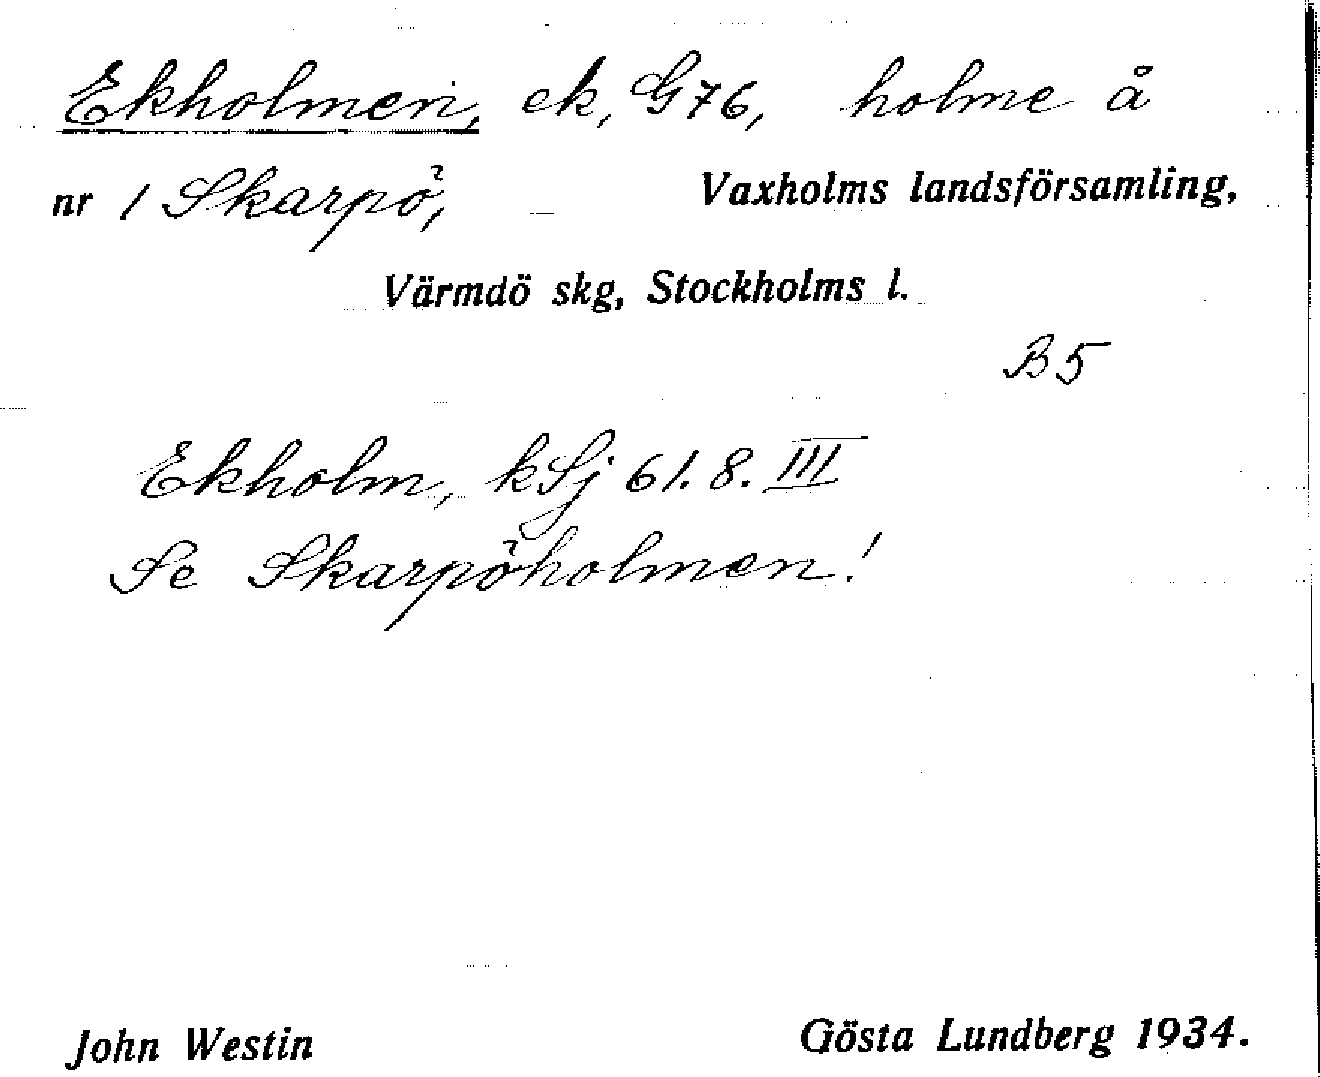 Ekholmen, ek, G76, holme å
nr 1 Skarpö, Vaxholms landsförsamling,
Värmdö skg, Stockholms l.
B5
Ekholm, kSj 61. 8. III
Se Skarpöholmen!
John Westin Gösta Lundberg 1934.